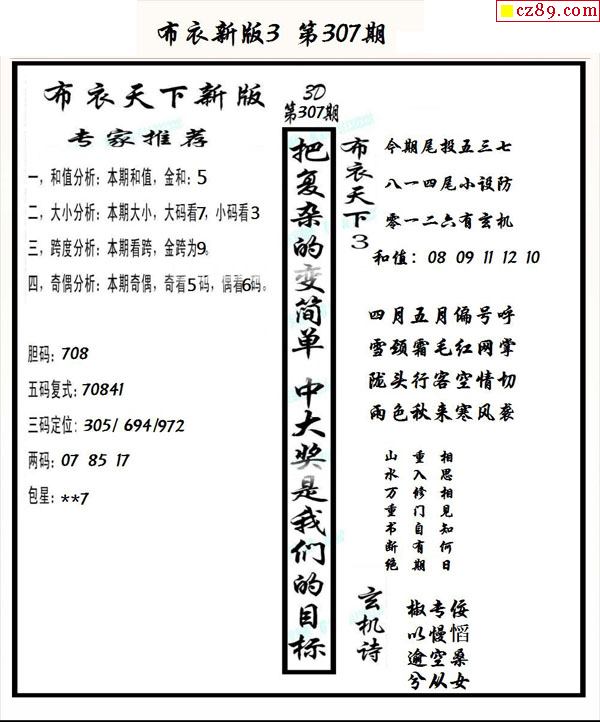 cz89.com
布衣新版3 第307期
布衣天下新版
专家推荐
一，和值分析：本期和值，金和：5
二，大小分析：本期大小，大码看7，小码看3
三，跨度分析：本期看跨，金跨为9。
四，奇偶分析：本期奇偶，奇看5码，偶看6码。
胆码：708
五码复式：70841
三码定位：305/ 694/972
两码：07 85 17
包星：**7
3D
第307期
把复杂的变简单 中大奖是我们的目标
布衣天下3
今期尾投五三七
八一四尾小设防
零一二六有玄机
和值：08 09 11 12 10
四月五月偏号呼
雪颈霜毛红网掌
陇头行客空情切
雨色秋来寒风袭
相思相见知何日
重入修门自有期
山水万重书断绝
玄机诗
椒专佞
以慢慆
逾空桑
兮从女